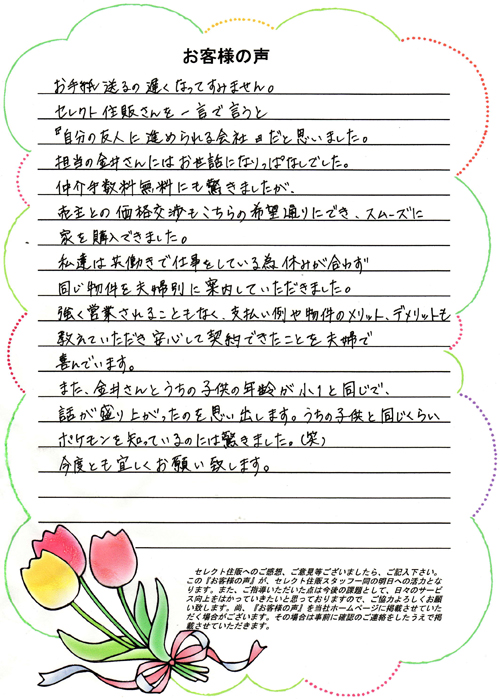 お客様の声
お手紙送るの遅くなってすみません。
セレクト住販さんを一言で言うと
『自分の友人に進められる会社』だと思いました。
担当の金井さんにはお世話になりっぱなしでした。
仲介手数料無料にも驚きましたが、
売主との価格交渉もこちらの希望通りにでき、スムーズに
家を購入できました。
私達は共働きで仕事をしている為休みが合わず
同じ物件を夫婦別に案内していただきました。
強く営業されることもなく、支払い例や物件のメリット、デメリットも
教えていただき安心して契約できたことを夫婦で
喜んでいます。
また、金井さんとうちの子供の年齢が小1と同じで、
話が盛り上がったのを思い出します。うちの子供と同じくらい
ポケモンを知っているのには驚きました。(笑)
今度とも宜しくお願い致します。
セレクト住販へのご感想、ご意見等ございましたら、ご記入下さい。
この『お客様の声』が、セレクト住販スタッフ一同の明日への活力とな
ります。また、ご指導いただいた点は今後の課題として、日々のサービ
ス向上をはかっていきたいと思っておりますので、ご協力よろしくお願
い致します。尚、『お客様の声』を当社ホームページに掲載させていた
だく場合がございます。その場合は事前に確認のご連絡をしたうえで掲
載させていただきます。